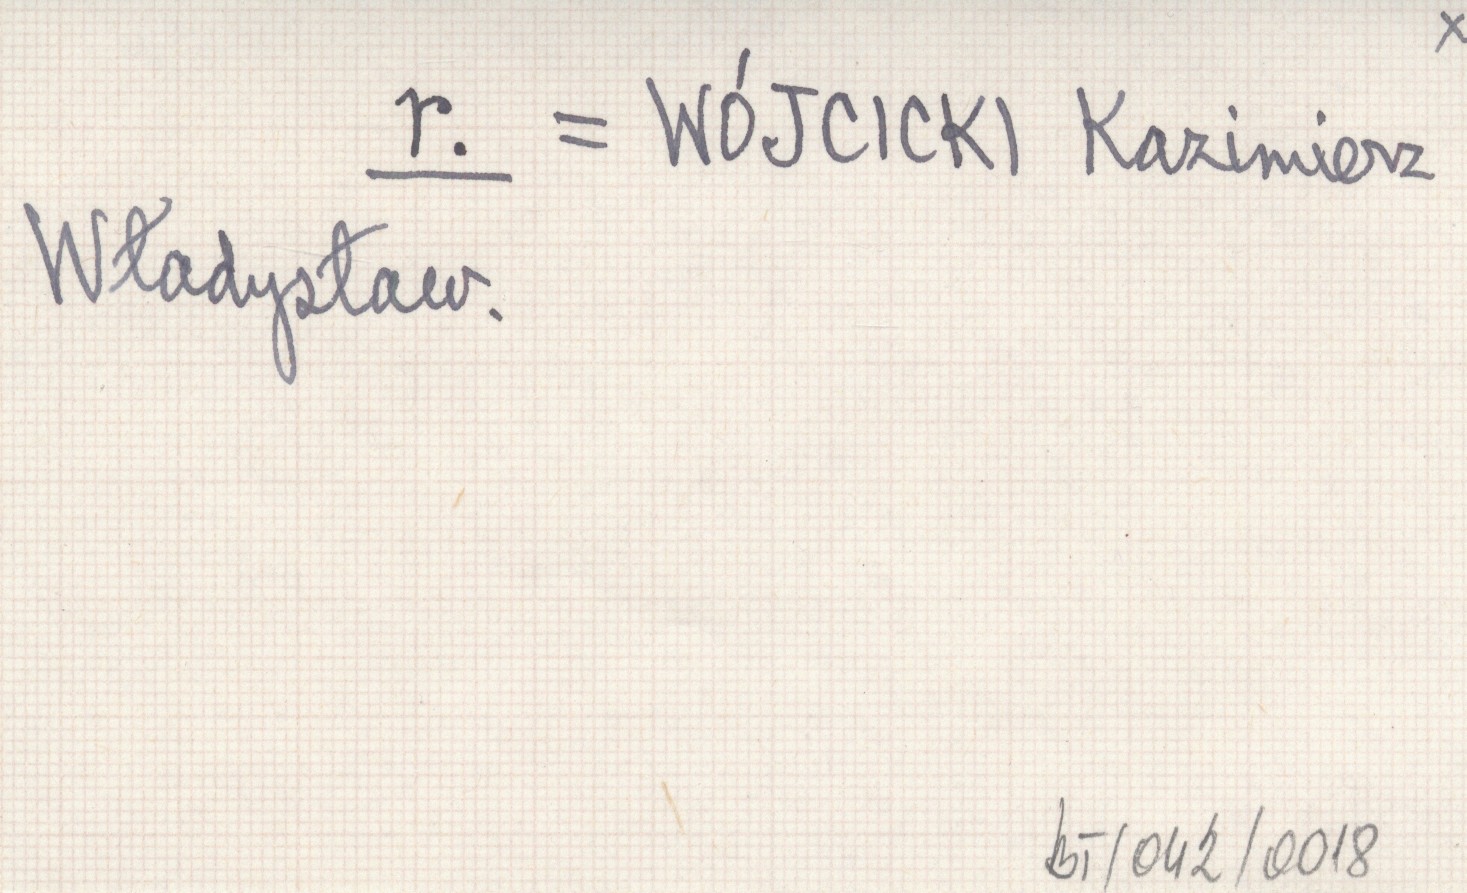 x
r. = WÓJCICKI Kazimierz
Władysław.
bI/042/0018